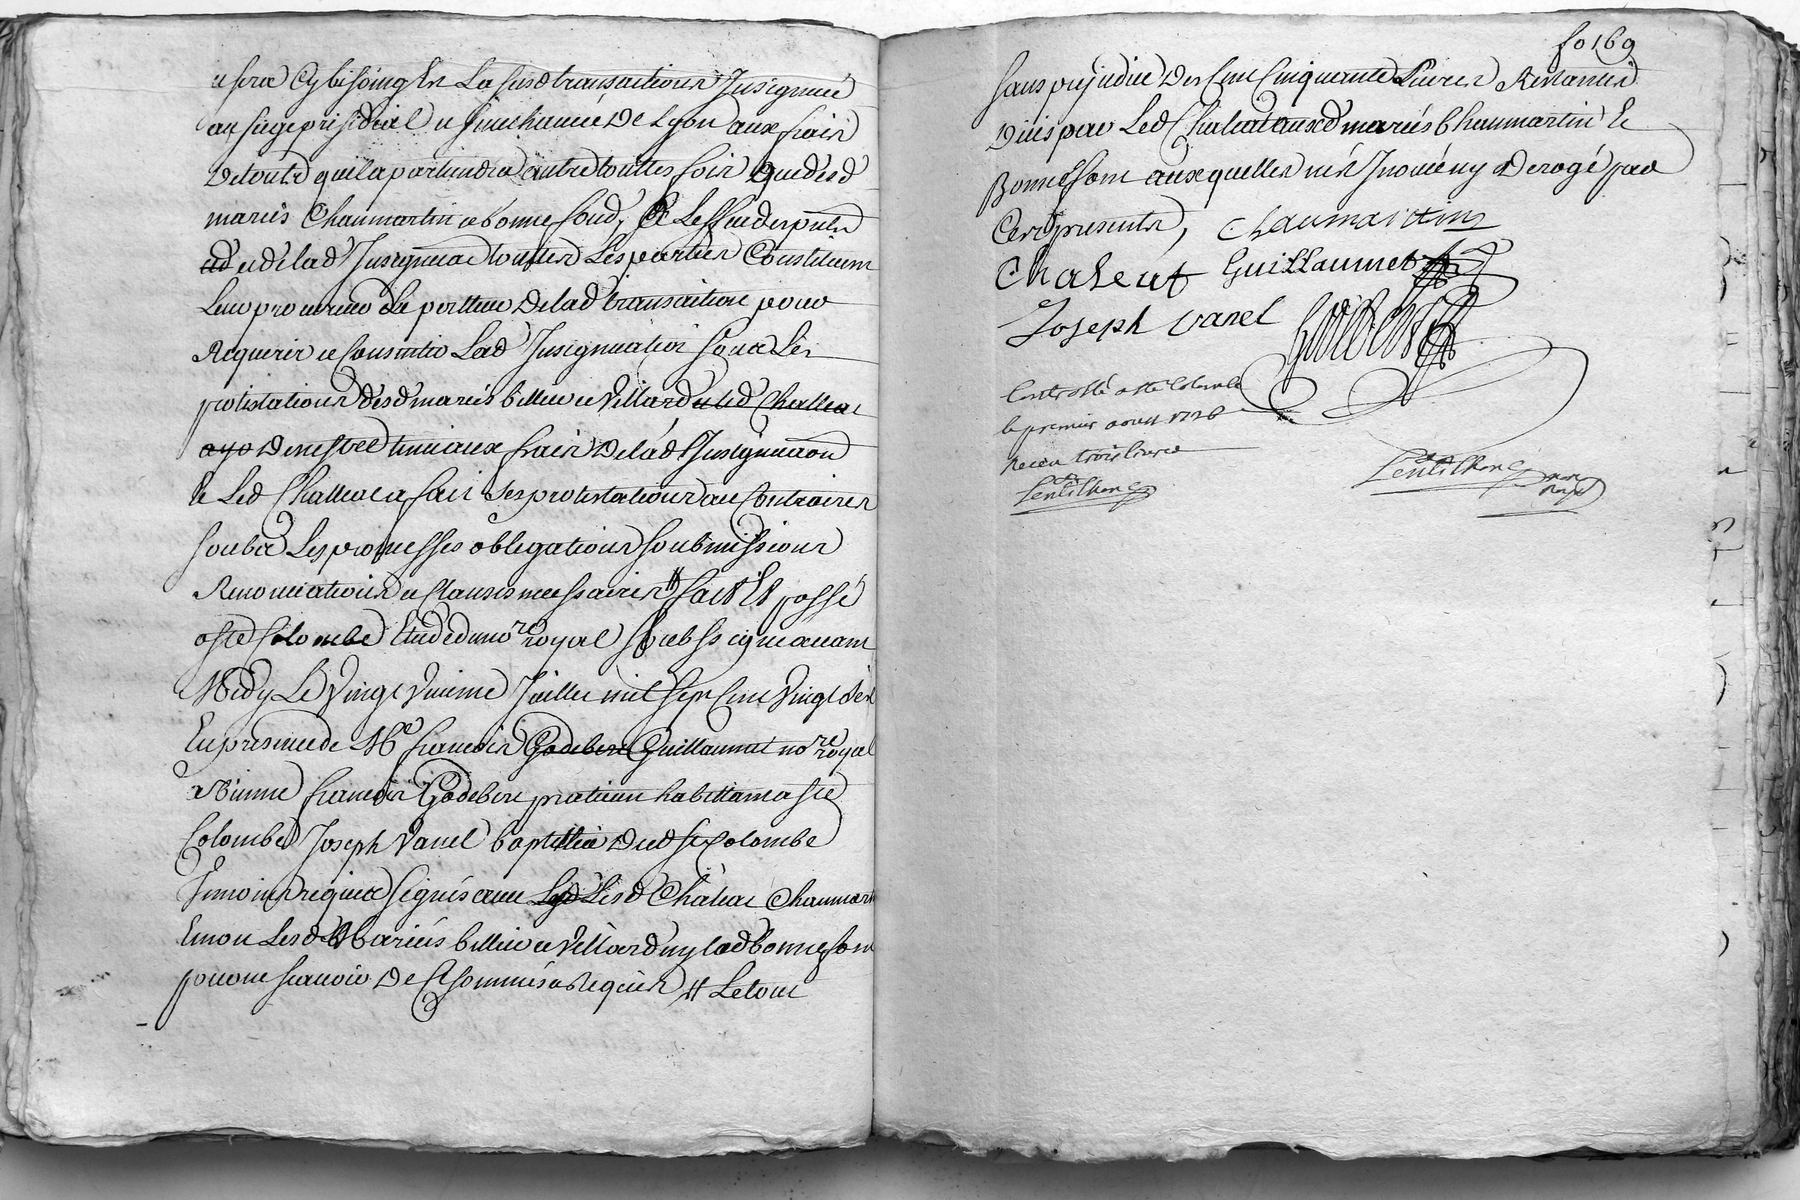 e sera Cy besoing Est La susd transactions Insignuée
au siege presidial e senechaucée De Lyon aux frais
De toutte quil apartiendra autre touttes fois que desd
mariés Chaumartin e bonnefond,
ed e delad Insignuaon touttes Les parties Constituent
Leur procureur Le porteur Delad transaction pour
Requerir e Consentir Lad Insignuation soubs Les
protestations desd mariés bellier e Villard e led Challeat
ayo De nestre tenu aux frais Delad Insignuaon
Et Led Challeat a fait Ses protestations au Contraires
soubs Les promesses obligations soubmissions
Renonciations e clauses necessaires # fait Et passé
a Ste Colombe Etude du nore royal soubssigne auant
Midy Le Vingt Juillet mil sept Cent Vingt
En presence de Me francois Godebert Guillaumet nore royal
a Vienne francois Godebert praticien habittant a Ste
Colombe Joseph Vanel dud Ste Colombe
Temoins requis e signés auec Led Lesd Chaleat Chaumart
Et non Lesd Mariés bellier e Villard ny lad bonnefont
pour ne scauoir De Ce sommés e Requis # Le tout
fo 169
sans prejudice Des Cent Cinquante Liures Restantes
Deües par Led Chaleat ausd mariés Chaumartin Et
Bonnefont ausquelles nest Inoué ny Derogé par
Ces presentes, Chaumartin
Chaleat Guillaumet
Joseph Vanel Godebert
Controllé a Ste Colombe
le premier aoust 1726
Receu trois liures
Lentilhon
Lentilhon nore royal